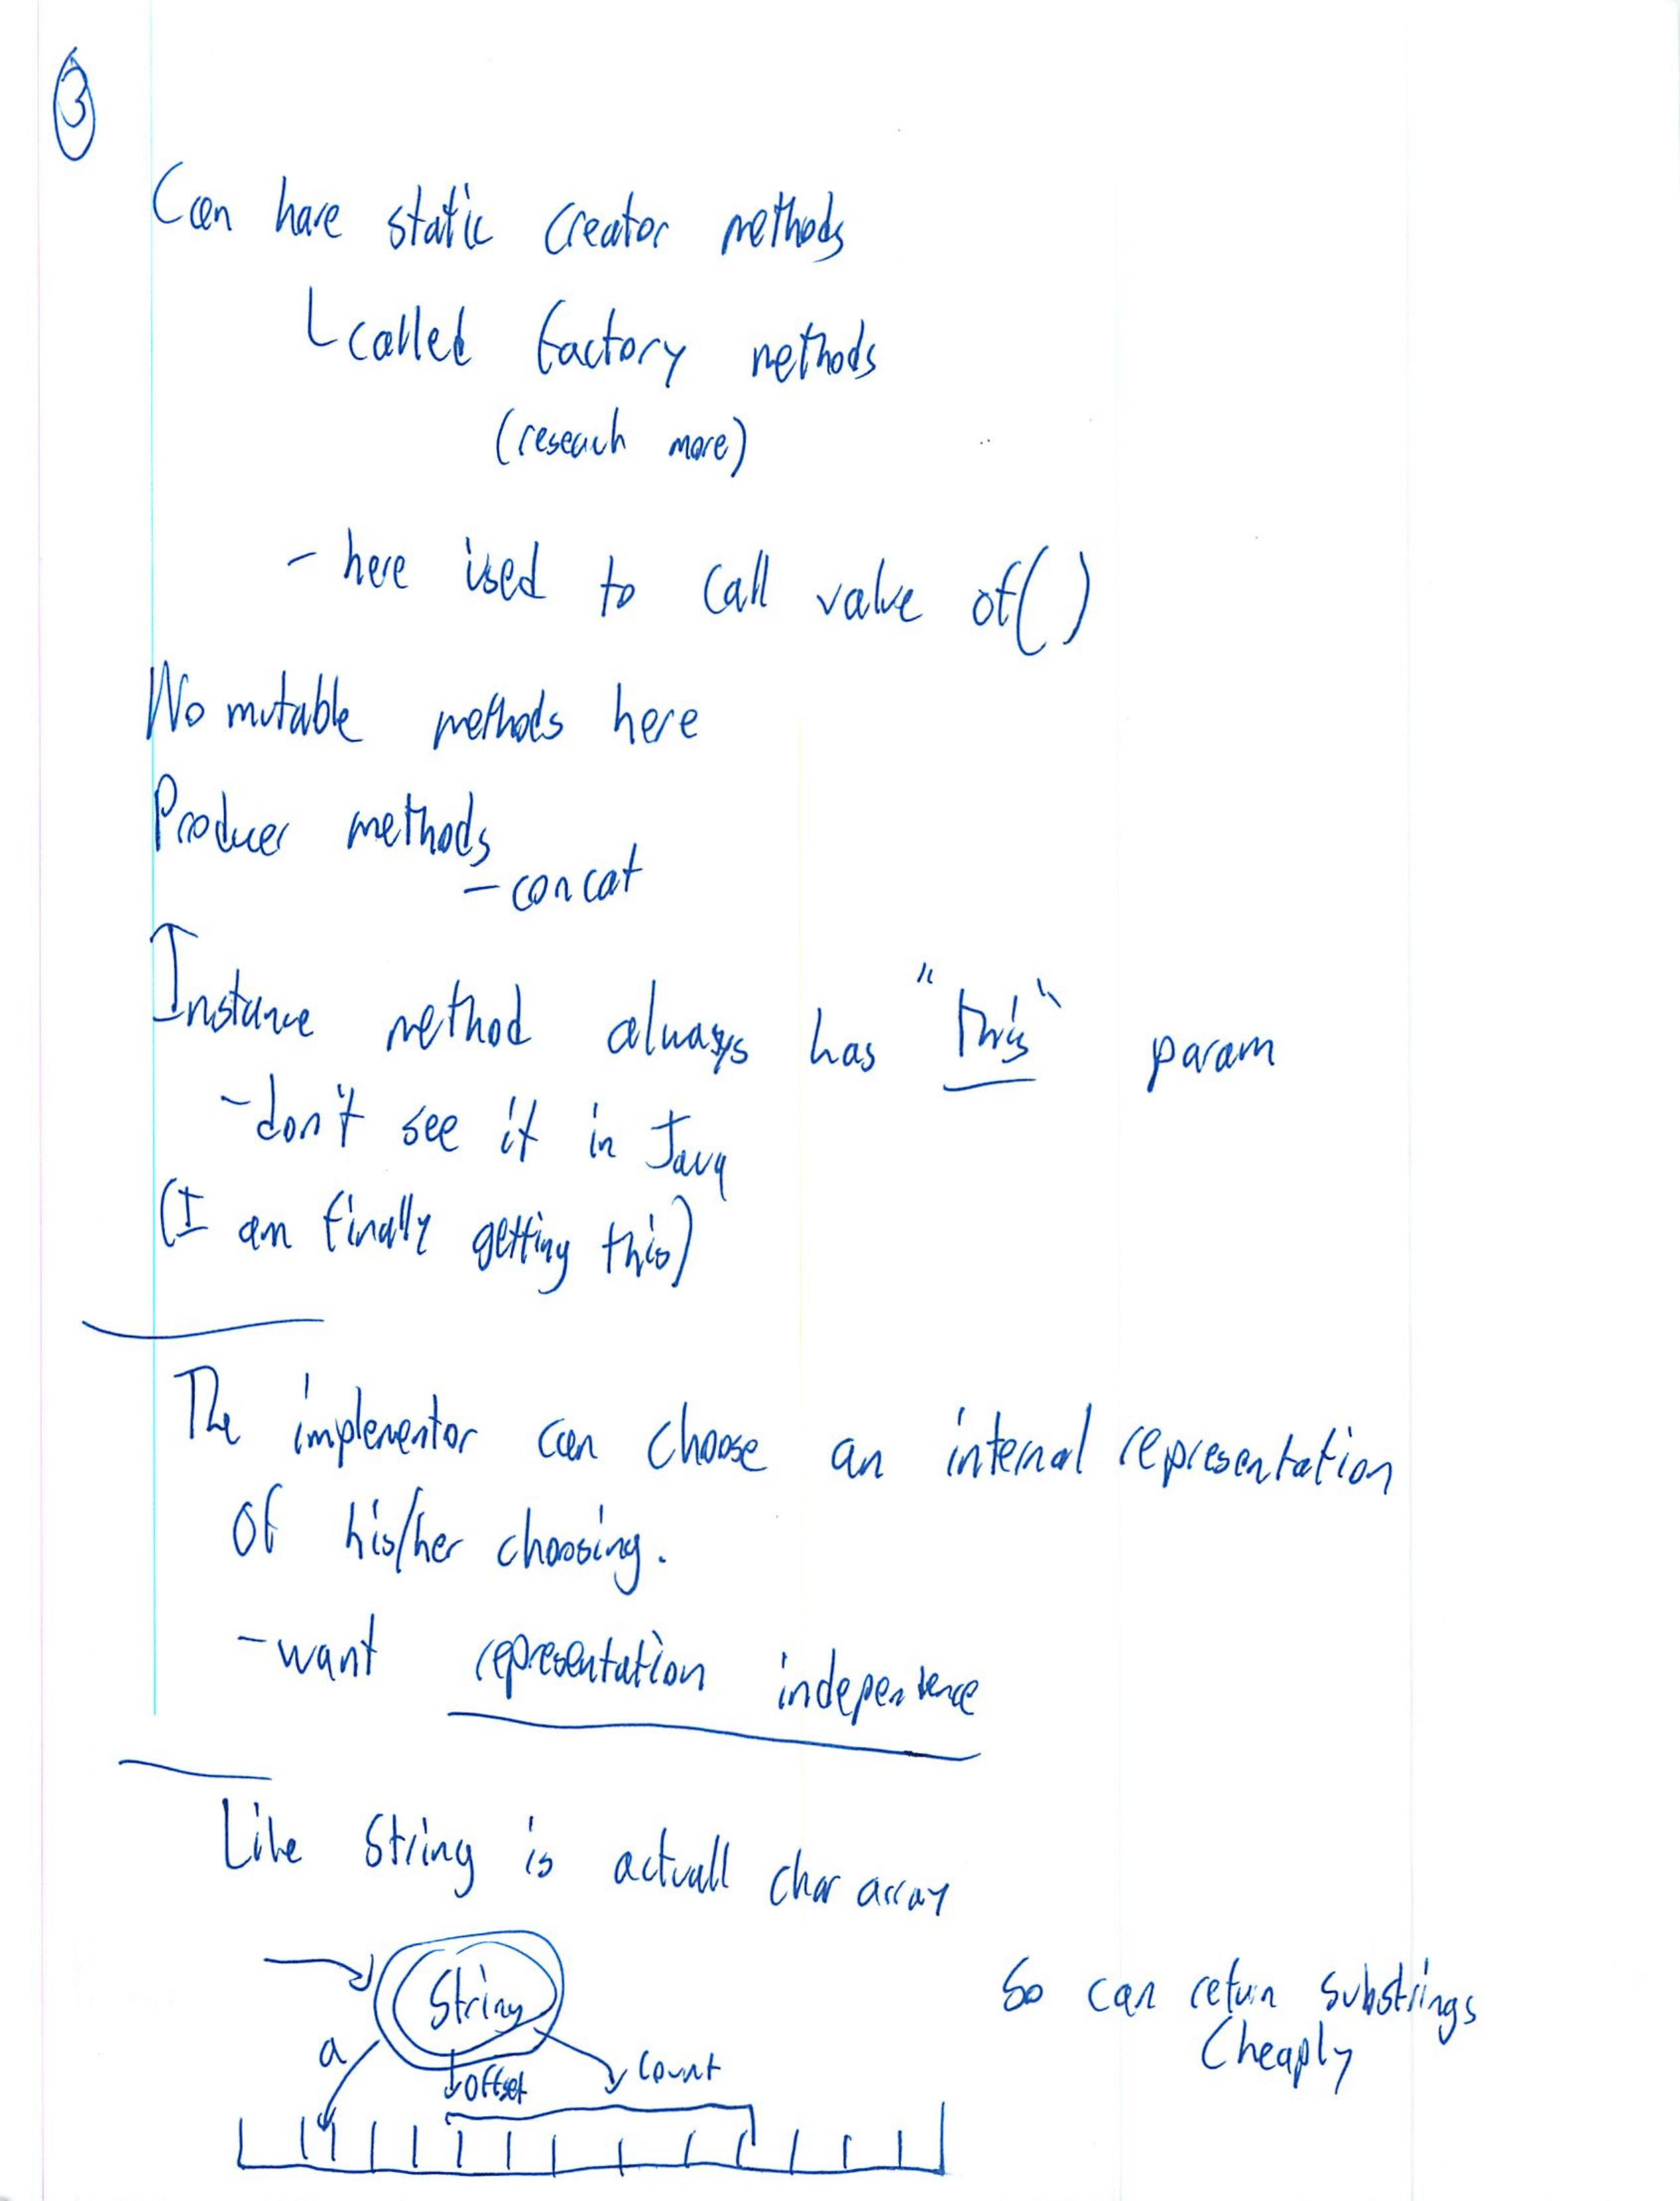 3
Can have static creator methods
called factory methods
(reseach more)
- here used to call value of()
No mutable methods here
Producer methods
- concat
Instance method always has "this" param
- don't see it in Java
(I am finally getting this)
The implementor can choose an internal representation
of his/her choosing.
- want representation independence
Like String is actuall char array
String
So can return substrings
cheaply
a
offset
count